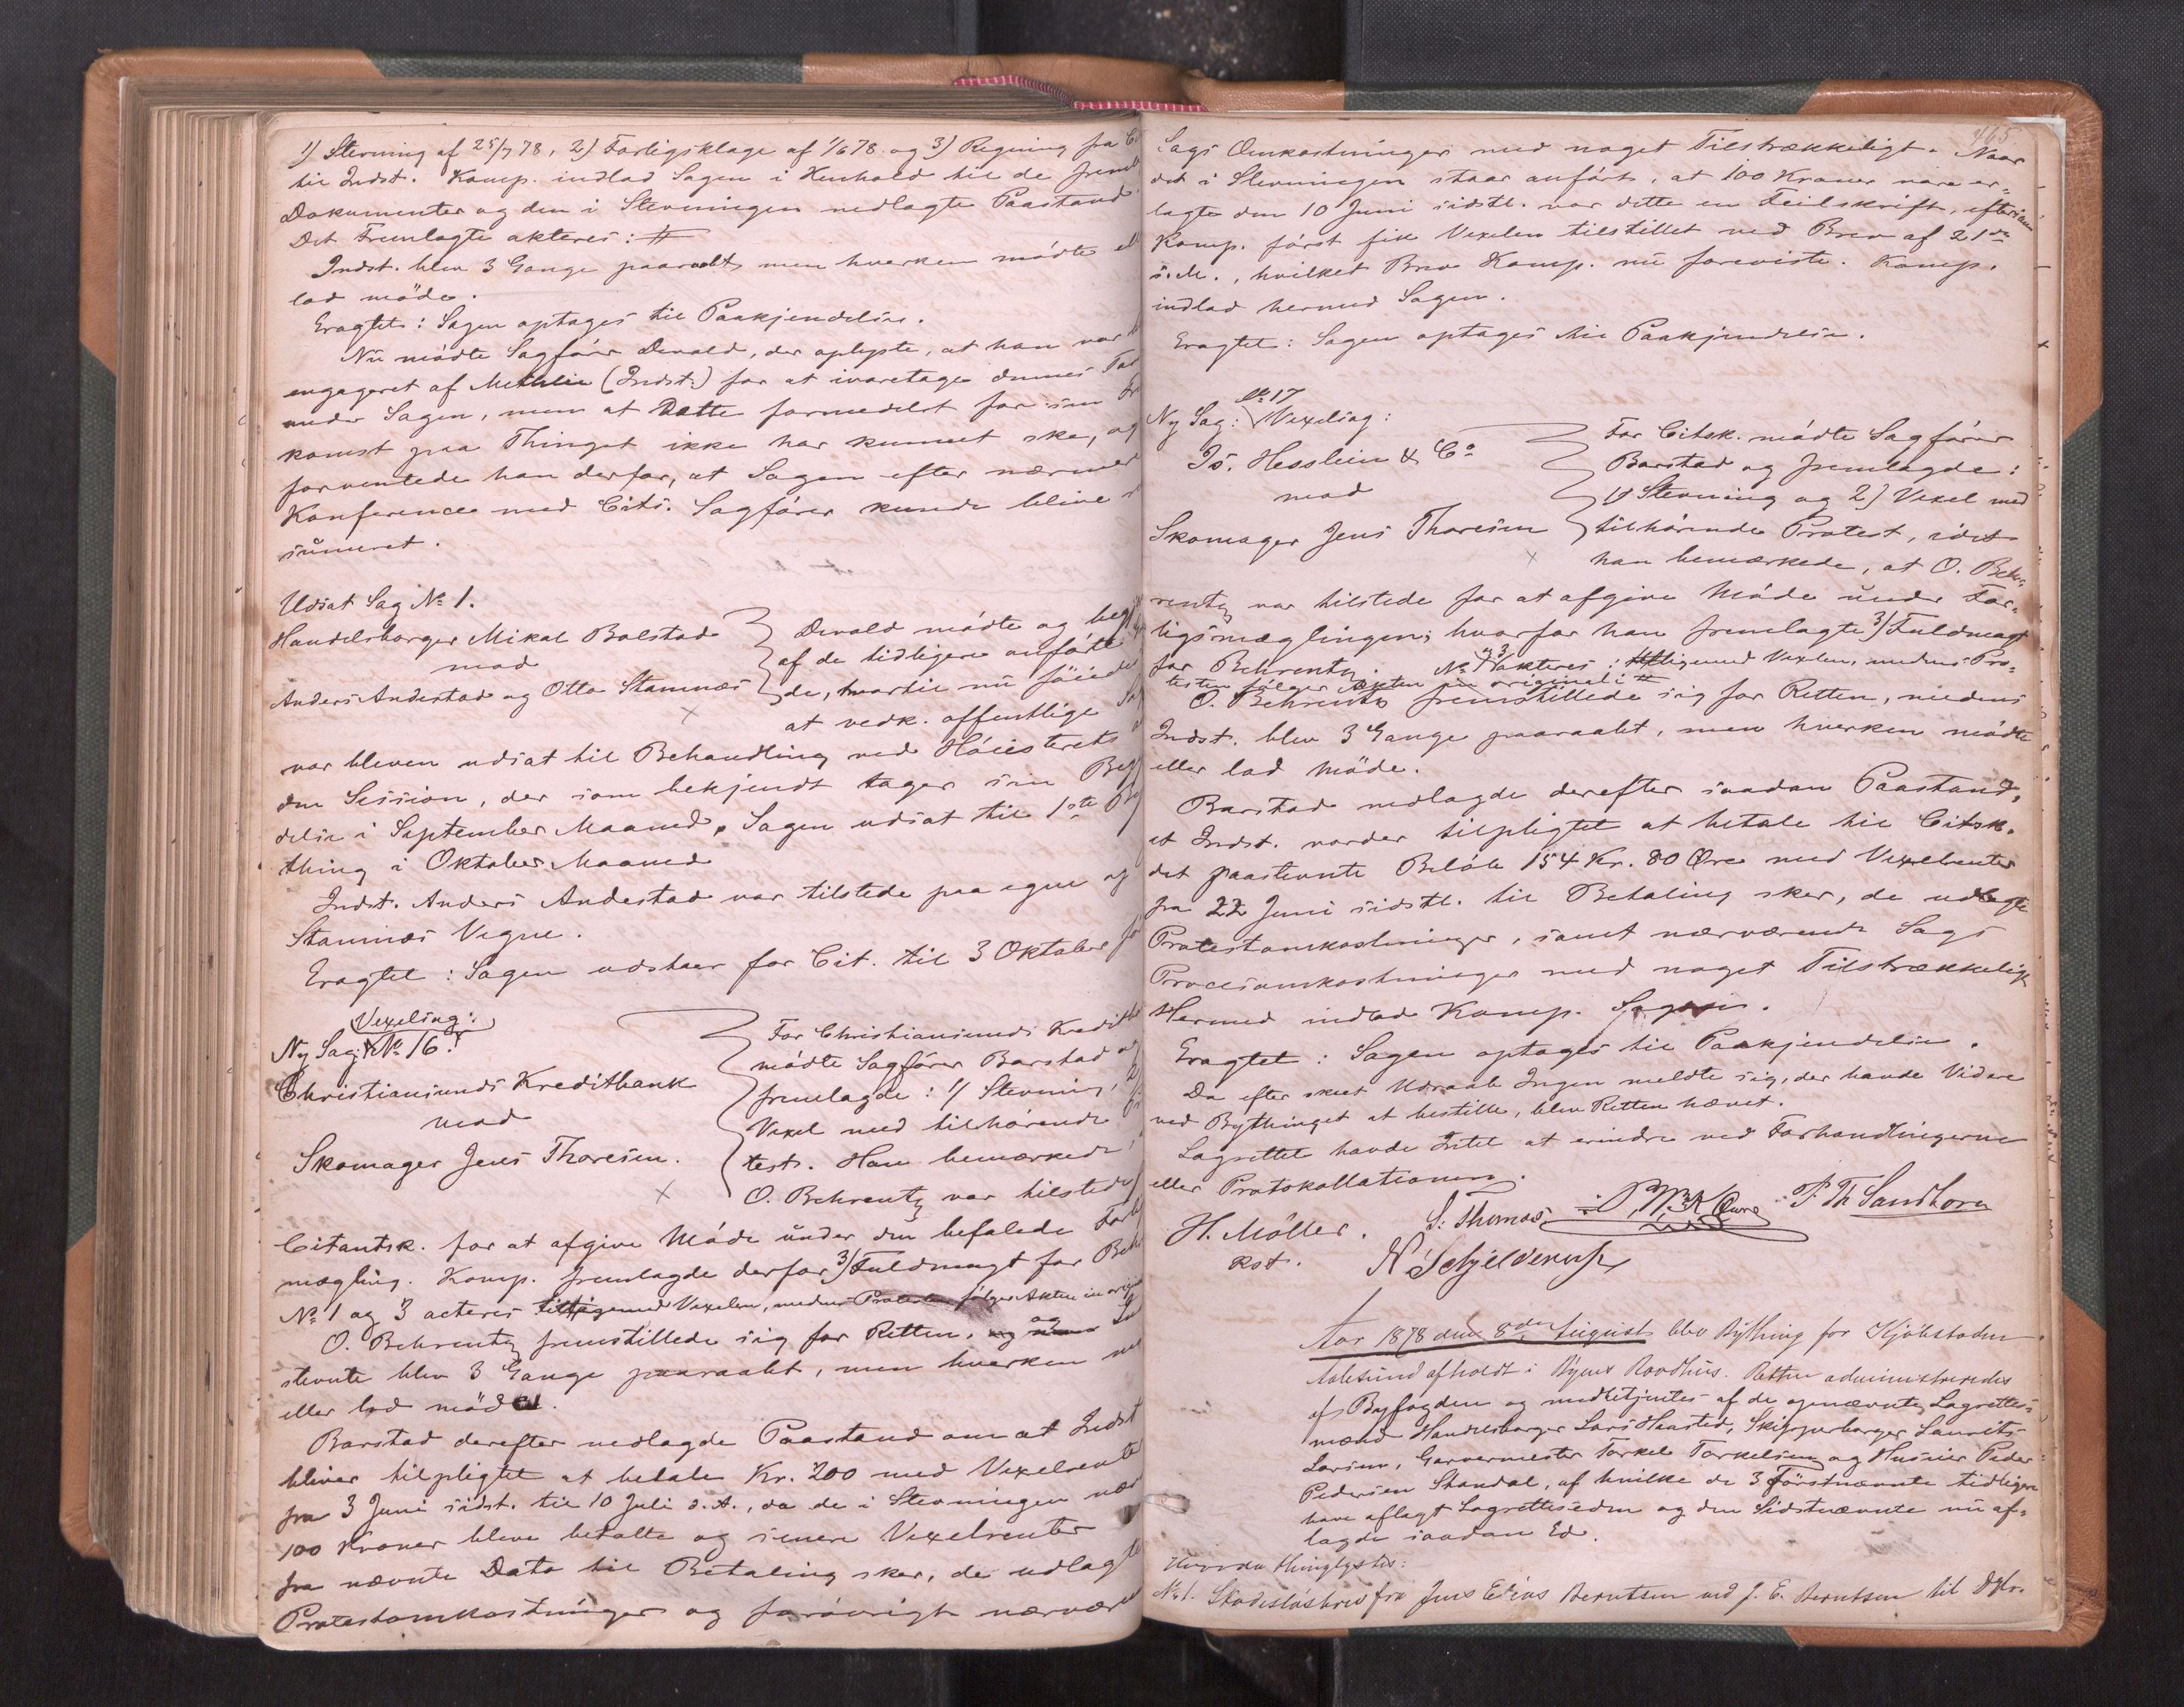 1) Stevning af 25/7 78, 2) Forligsklage af 1/6 78 og 3) Regning fra
til Indst. Komp. indlod Sagen i Henhold til de
Dokumenter og den i Stevningen nedlagte Paastand
Det Fremlagte akteres: #
Indst. blev 3 Gange paaraabt men hverken mødte
lod møde.
Eragtet: Sagen optages til Paakjendelse.
Nu mødte Sagfører Devold, der oplyste, at han var
engageret af (Indst.) for at ivaretage dennes
under Sagen, men at Dette formedelst for sin
komst paa Thinget ikke har kunnet ske, og
forventede han derfor, at Sagen efter nærmere
Konference med Cits. Sagfører kunde blive
sumeret.
Udsat Sag No 1.
Handelsborger Mikal Bolstad
mod
Anders Andestad og Otto Stamnæs
Devold mødte og
af de tidligere anførte
de, hvortil nu føiedes
at vedk. offentlige
var bleven udsat til Behandling ved Høiesterets
den Session, der som bekjendt tager sin
delse i September Maaned. Sagen udsat til 1ste
thing i Oktober Maaned
Indst. Anders Andestad var tilstede paa egne og
Stamnæs Vegne.
Eragtet: Sagen udstaar for Cit. til 3 Oktober
Vexelsag:
Ny Sag: No 16:
Christiansunds Kreditbank
mod
Skomager Jens Thoresen.
For Christiansunds
mødte Sagfører Barstad og
fremlagde: 1) Stevning,
Vexel med tilhørende
test. Han bemærkede,
O. Behrentz var tilstede
Citantsk. for at afgive Møde under den befalede
mægling. Komp. fremlagde derfor 3) Fuldmagt for
No 1 og 3 acteres tilligemed Vexelen, medens Protesten følger Akten in
O. Behrentz fremstillede sig for Retten, og
stevnte blev 3 Gange paaraabt, men hverken
eller lod møde.
Barstad derefter nedlagde Paastand om at Indst
bliver tilpligtet at betale Kr. 200 med Vexelrente
fra 3 Juni sidst. til 10 Juli d.A., da de i Stevningen
100 Kroner bleve betalte og senere Vexelrenter
fra nævnte Dato til Betaling sker, de udlagte
Protestomkostninger og forøvrigt
465
Sags Omkostninger med noget Tilstrækkeligt. Naar
det i Stevningen staar anført, at 100 Kroner vare er=
lagte den 10 Juni sidstl. var dette en Feilskrift, eftersom
Komp. først fik Vexelen tilstillet ved Brev af 21de
s. M., hvilket Brev Komp. nu foreviste. Komp.
indlod hermed Sagen.
Eragtet: Sagen optages til Paakjendelse.
No 17
Ny Sag: Vexelsag:
Is. Hesslein & Co
mod
Skomager Jens Thoresen
For Citsk. mødte Sagfører
Barstad og fremlagde:
1) Stevning og 2) Vexel med
tilhørende Protest, idet
han bemærkede, at O. Beh=
rentz var tilstede for at afgive Møde under For=
ligsmæglingen; hvorfor han fremlagte 3) Fuldmagt
for Behrentz. No 1 og 3 akteres: tilligemed Vexelen, medens Pro=
testen følger Akten in originali #
O. Behrentz fremstillede sig for Retten, medens
Indst. blev 3 Gange paaraabt, men hverken mødte
eller lod Møde.
Barstad nedlagde derefter saadan Paastand,
at Indst. vorder tilpligtet at betale til Citsk.
det paastevnte Beløb 154 Kr. 80 Øre med Vexelrenter
fra 22 Juni sidstl. til Betaling sker, de udlagte
Protestomkostninger, samt nærværende Sags
Procesomkostninger med noget Tilstrækkeligt
Hermed indlod Komp. Sagen.
Eragtet: Sagen optages til Paakjendelse.
Da efter skeet Udraab Ingen meldte sig, der havde Videre
ved Bythinget at bestille, blev Retten hævet.
Lagrettet havde Intet at erindre ved Forhandlingerne
eller Protokollationen.
H. Møller. S. Thomas P. Th Sandborn
Kst. N Schjelderup
Aar 1878 den 8de August blev Bything for Kjøbstaden
Aalesund afholdt i Byens Raadhus. Retten administreredes
af Byfogden og medbetjentes af de opnævnte Lagrettes=
mænd Handelsborger Lars Hansted, Skipperborger Laurits
Larsen, Garvermester Torkel Torkelsen og Huseier Peder
Pedersen Standal, af hvilke de 3 Førstnævnte tidligere
have aflagt Lagretteseden og den Sidstnævnte nu af=
lagde saadan Ed.
Hvorda thinglystes:
No 1. Skadesløsbrev fra Jens Elias Berntsen ved J. E. Berntsen til